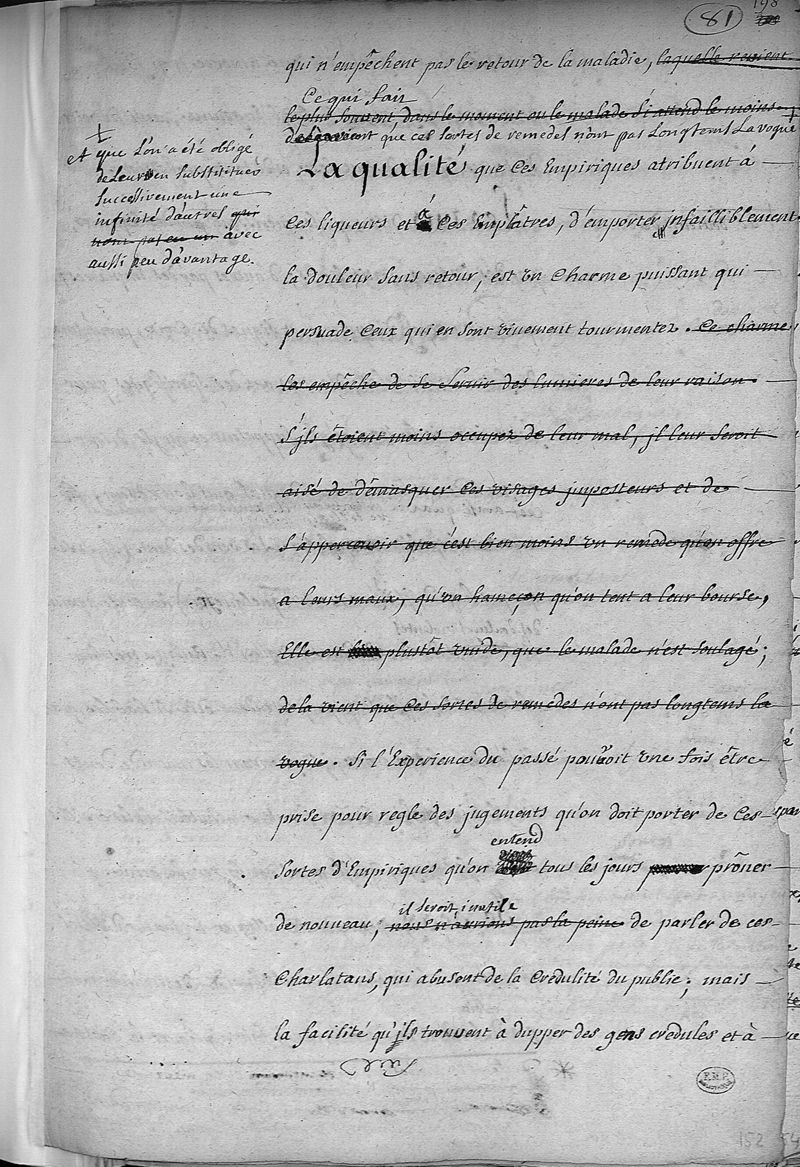 81
198
qui n'empêchent pas le retour de la maladie, laquelle revient
Ce qui fait
le plus souvent, dans le moment ou le malade s'i attend le moins
que ces sortes de remedes n'ont pas Longtems La vogue +
+
et que L'on a été obligé
de Leur en substituer
successivement une
infinité d'autres qui
n'ont pas eu un avec
aussi peu d'avantage.
La qualité que ces Empiriques atribuent à
ces liqueurs et à ces Emplâtres, d'emporter jnfailliblement
la douleur sans retour, est un Charme puissant qui
persuade ceux qui en sont vivement tourmentez. Ce charme
les empêche de se servir des lumieres de leur raison.
S'jls étoient moins occupez de leur mal, jl leur seroit
aisé de démasquer ces visages jmposteurs et de
s'appercevoir que c'est bien moins un remede qu'on offre
a leurs maux, qu'un hameçon qu'on tent a leur bourse,
Elle est plustôt vuide, que le malade n'est soulagé;
de la vient que ces sortes de remedes n'ont pas longtems la
vogue. Si l'Experience du passé pouvoit une fois être
prise pour regle des jugements qu'on doit porter de ces
entend
sortes d'Empiriques qu'on tous les jours prôner
il seroit inutile
de nouveau; nous n'aurions pas la peine de parler de ces
Charlatans, qui abusent de la credulité du public; mais
la facilité qu'jls trouvent à dupper des gens credules et à
152